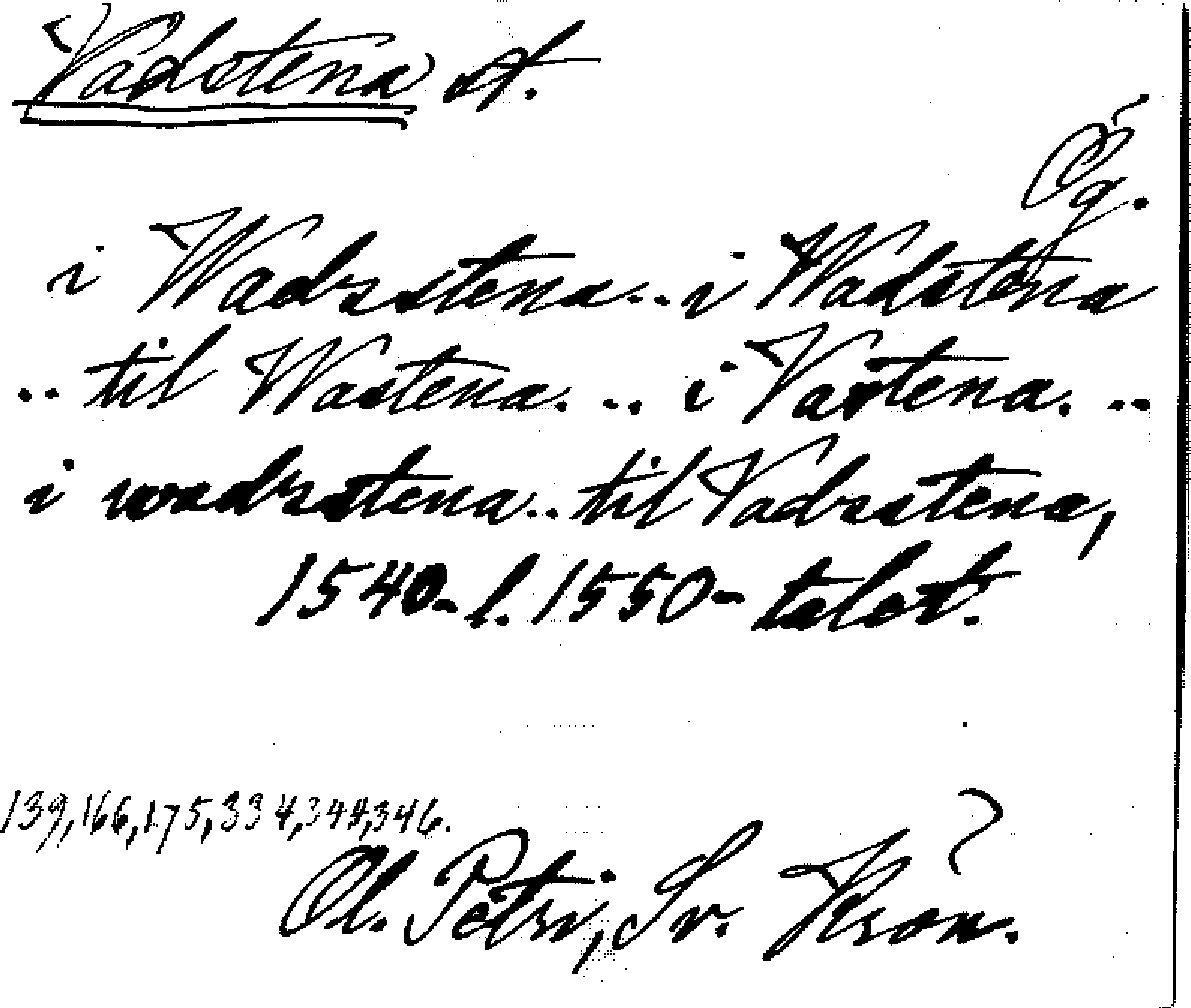 Vadstena st.
Ög.
i Wadzstena .. i Wadstena
.. til Wastena. .. i Vastena. ..
i wadzstena .. til Vadzstena,
1540- l. 1550-talet.
139, 166, 175, 334, 344, 346.
Ol. Petri, Sv. Krön.